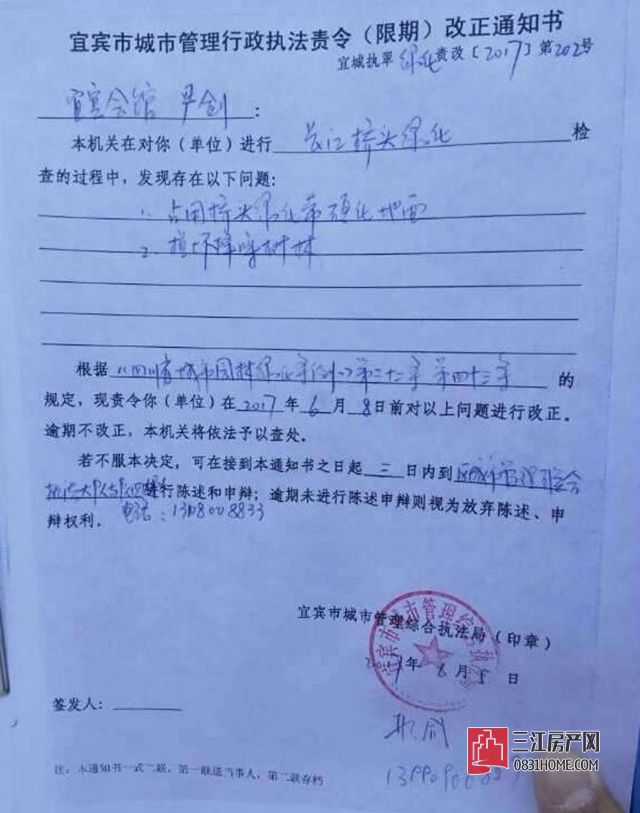 宜宾市城市管理行政执法责令（限期）改正通知书
宜城执翠绿化责改〔2017〕第202号
宜宾会馆 尹创：
本机关在对你（单位）进行长江桥头绿化检
查的过程中，发现存在以下问题：
1、占用桥头绿化带硬化地面
2、损坏 树木
根据《四川省城市园林绿化条例》第二十 条 第四十三条的
规定，现责令你（单位）在2017年6月8日前对以上问题进行改正。
逾期不改正，本机关将依法予以查处。
若不服本决定，可在接到本通知书之日起三日内到区城市管理综合
执法大队 进行陈述和申辩；逾期未进行陈述申辩则视为放弃陈述、申
辩权利。电话：1308008833
宜宾市城市管理综合执法局（印章）
2017年6月5日
签发人：
注：本通知书一式二联，第一联送当事人，第二联存档
三江房产网
0831HOME.COM